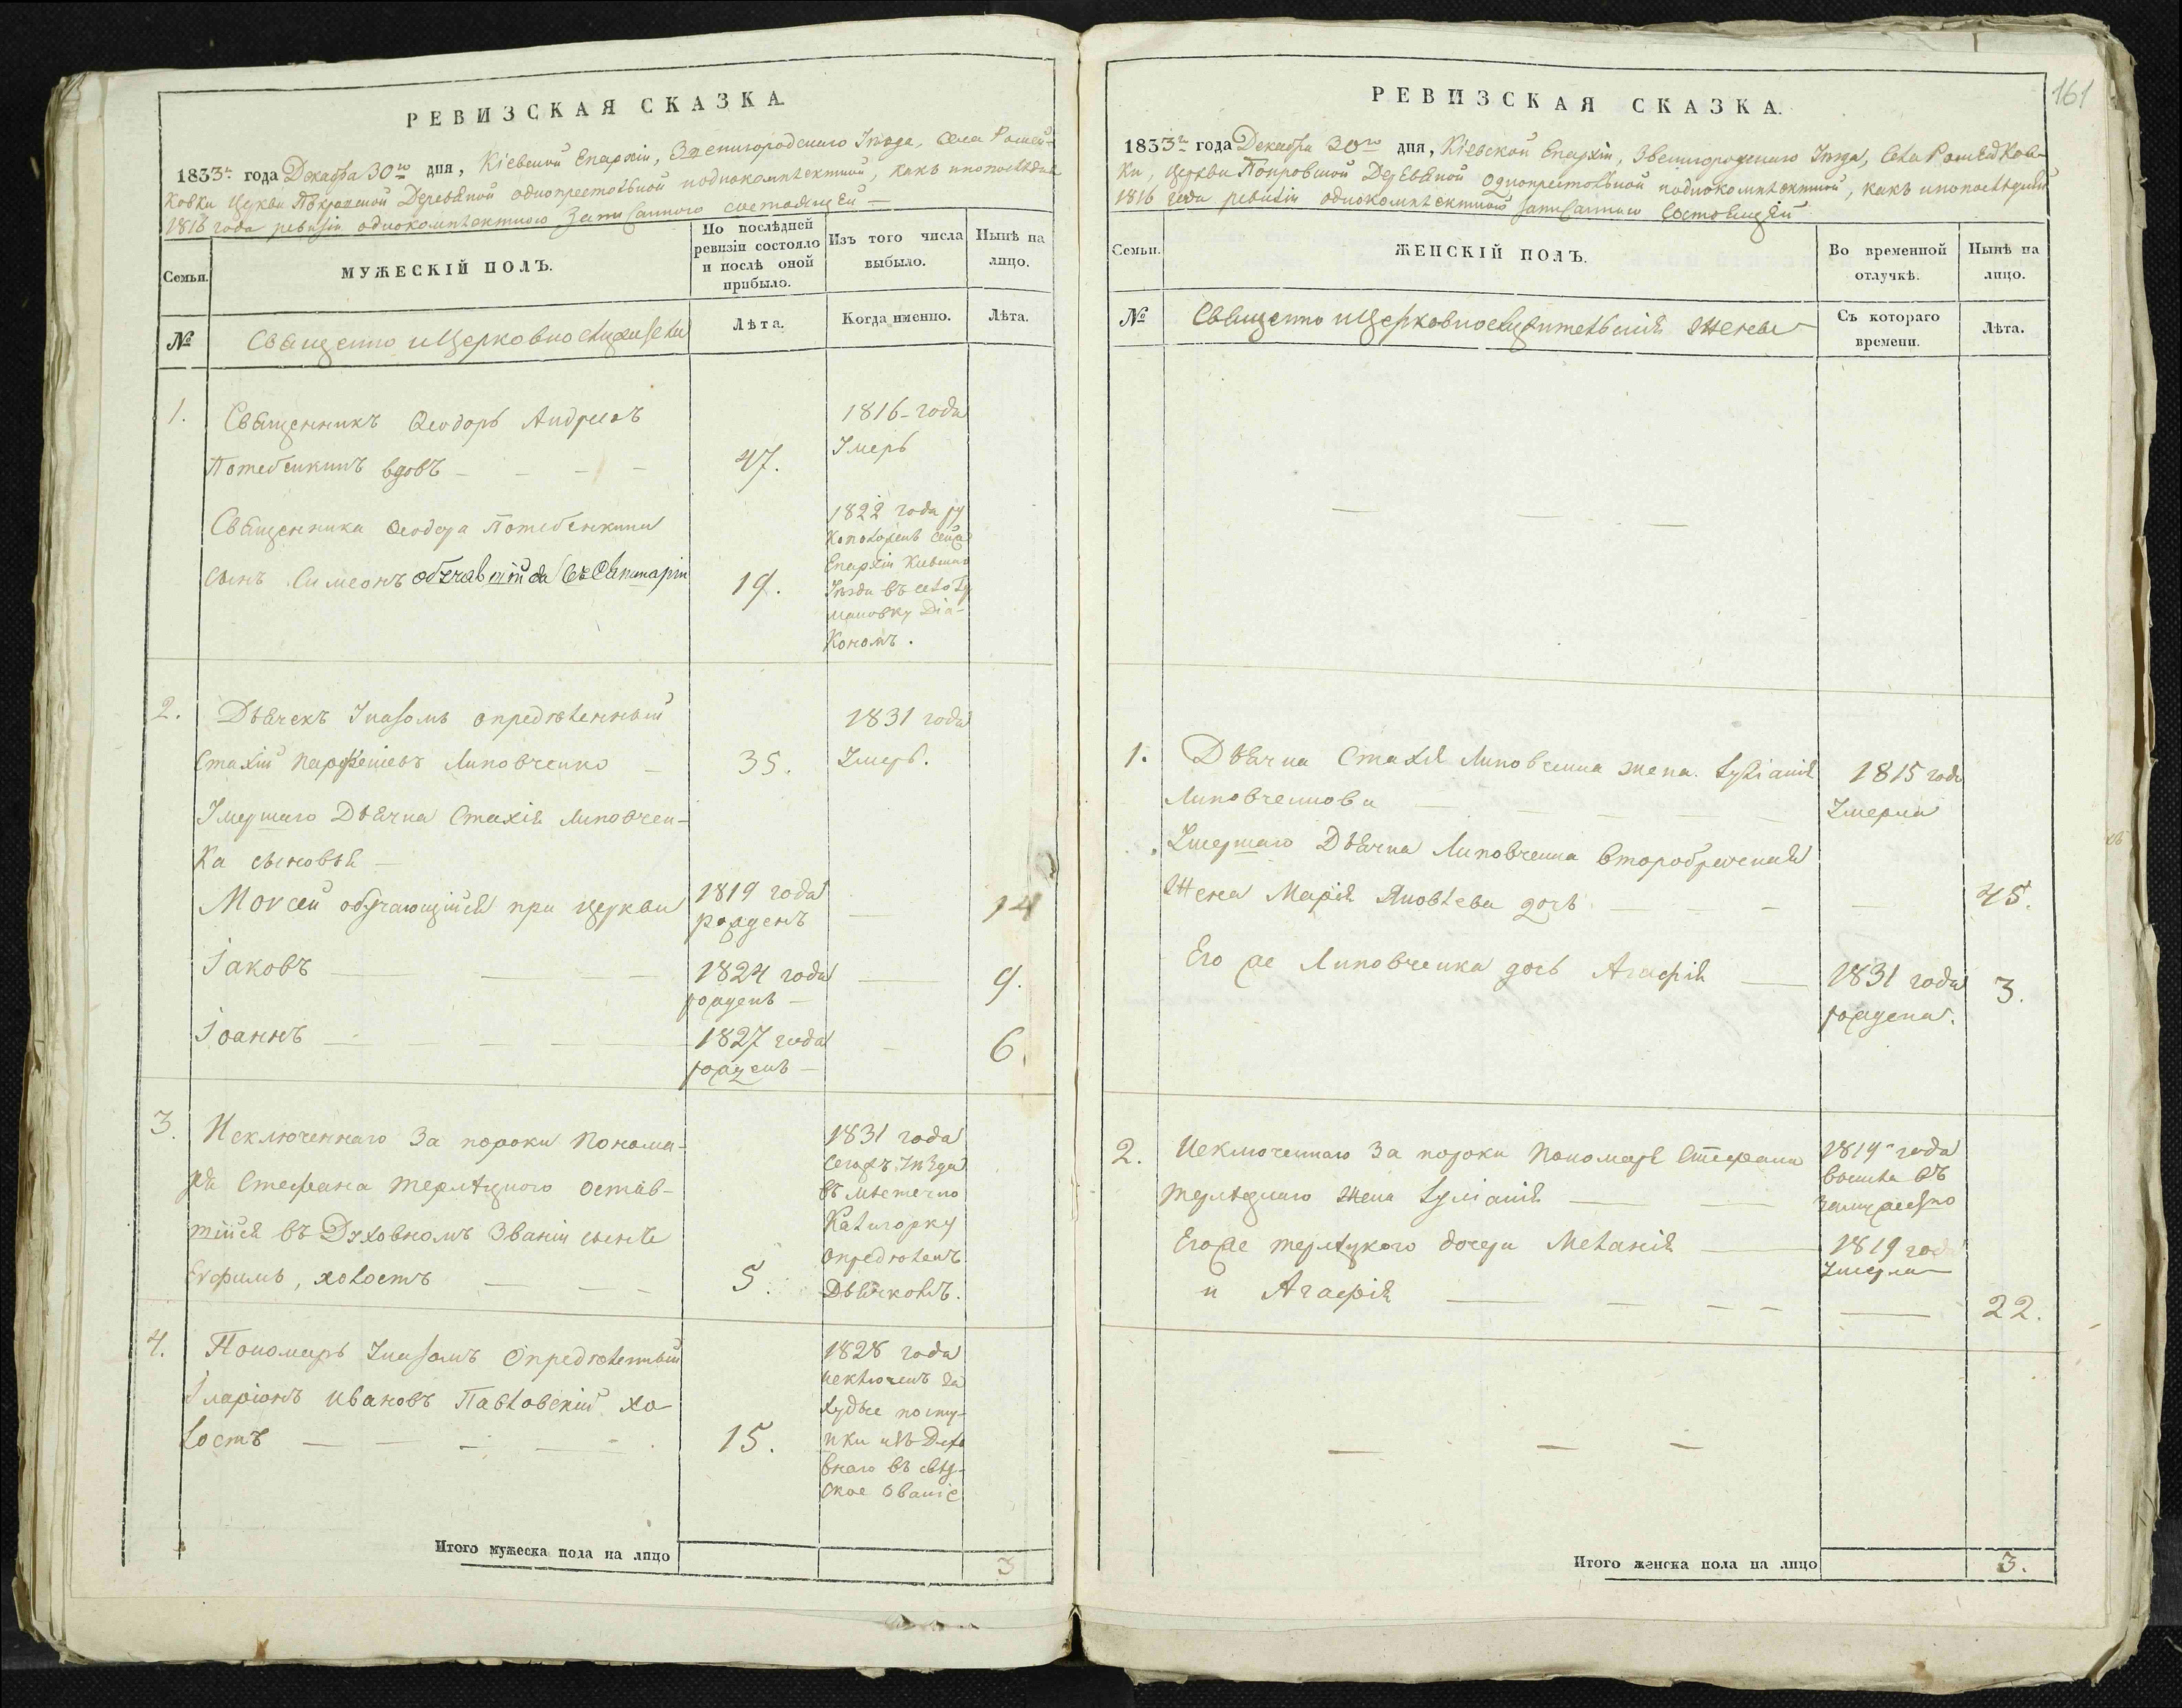 РЕВИЗСКАЯ СКАЗКА.
1833го года Декабря 30го дня, Кіевской Епархіи, Звенигородскаго Уѣзда, села Ромей-
ковки церкви Покровской Деревяной однопрестольной поднокомплектной, какъ ипопослѣдней
1816 года ревизіи однокомплектною записанною состоящей —
Семьи.
МУЖЕСКІЙ ПОЛЪ.
По послѣдней ревизіи состояло и послѣ оной прибыло.
Изъ того числа выбыло.
Нынѣ на лицо.
№
Священно ицерковнослужители
Лѣта.
Когда именно.
Лѣта.
1. Священникъ Ѳеодоръ Андреевъ
Потебенкинъ вдовъ — — — —
47.
1816 года
Умеръ
Священника Ѳеодора Потебенкина
сынъ Симеонъ
19.
1822 года ру
коположенъ сейже
Епархіи
Уѣзда въ село
Діа-
кономъ.
2. Дьячекъ Указомъ опредѣленный
Стахій Парфеніевъ Липовченко —
35.
1831 года
Умеръ.
Умершаго Дьячка Стахія Липовчен-
ка сыновья —
Моисей обучающійся при церкви
1819 года
рожденъ
—
14
Іаковъ — — —
1824 года
рожденъ —
—
9.
Іоаннъ — — — —
1827 года
рожденъ —
—
6.
3. Исключеннаго За пороки Понома-
ря Стефана Терлѣцкого остав-
шійся въ Духовномъ Званіи сынъ
Евфимъ, холостъ — — —
5.
1831 года
сегожъ Уѣзда
въ мѣстечко
Катигорку
опредѣленъ
Дьячкомъ.
4. Пономарь Указомъ Опредѣленный
Іларіонъ Ивановъ Павловскій хо
лостъ — — — — —
15.
1828 года
исключенъ за
худые посту-
пки изъ Духо
внаго въ свѣт-
ское званіе
Итого мужеска пола на лицо
3
161
РЕВИЗСКАЯ СКАЗКА.
1833го года Декабря 30го дня, Кіевской Епархіи, Звенигородскаго Уѣзда, Села Ромейков-
ки, церкви Покровской Деревяной однопрестольной поднокомплектной, какъ ипопослѣдней
1816 года ревизіи однокомплектною записанною состоящей
Семьи.
ЖЕНСКІЙ ПОЛЪ.
Во временной отлучкѣ.
Нынѣ на лицо.
№
Священно ицерковнослужительскія жены
Съ котораго времени.
Лѣта.
— — —
1. Дьячка Стахія Липовченка жена Іуліанія
Липовченкова — — — —
1815 года
Умерла
Умершаго Дьячка Липовченка второбрачная
жена Марія Яковлева дочь — — —
—
45.
Его же Липовченка дочь Агафія —
1831 года
рождена.
3.
2. Исключеннаго За пороки Пономаря Стефана
Терлѣцкаго жена Іуліанія — —
1819 года
вышла въ
замужество
Егоже Терлѣцкого дочери Меланія —
1819 года
Умерла
и Агафія — — — —
—
22.
— — —
Итого женска пола на лицо
3.